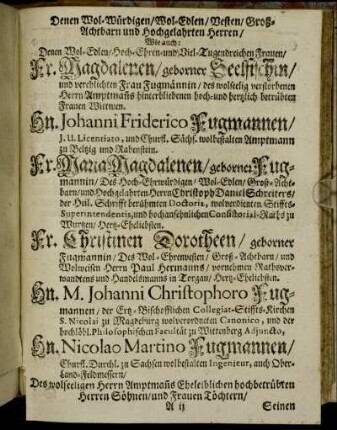 Denen Wol-Würdigen/Wol-Edlen/Vesten/Groß-
Achtbarn und Hochgelahrten Herren/
Wie auch:
Denen Wol-Edlen/Hoch-Ehren-und Viel-Tugendreichen Frauen/
Fr. Magdalenen/geborner Seelfischin/
und verehlichten Frau Fugmännin/des wolselig verstorbenen
Herrn Amptmañs hinterbliebenen hoch-und hertzlich betrübten
Frauen Wittwen.
Hn. Johanni Friderico Fugmannen/
J. U. Licentiato, und Churfl. Sächs. wolbestalten Amptmann
zu Beltzig und Rabenstein.
Fr. Maria Magdalenen/geborner Fug-
mannin/Des Hoch-Ehrwürdigen/Wol-Edlen/Groß-Acht-
barn/und Hochgelahrten Herrn Christoph Daniel Schreiters/
der Heil. Schrifft berühmten Doctoris, wolverdienten Stiffts-
Superintendentis, und hochansehnlichen Consistorial-Raths zu
Wurtzen/Hertz-Eheliebsten.
Fr. Christinen Dorotheen/geborner
Fugmannin/Des Wol-Ehrenvesten/Groß-Achtbarn/und
Wolweisen Herrn Paul Hermanns/vornehmen Rathsver-
wandtens und Handelsmanns in Torgau/Hertz-Eheliebsten.
Hn. M. Johanni Christophoro Fug-
mannen/der Ertz-Bischofflichen Collegiat-Stiffts-Kirchen
S. Nicolai zu Magdeburg wolverordneten Canonico, und der
hochlöbl. Philosophischen Facultät zu Wittenberg Adjuncto,
Hn. Nicolao Martino Fugmannen/
Churfl. Durchl. zu Sachsen wolbestalten Ingenieur, auch Ober-
Land-Feldmessern/
Des wolseeligen Herrn Amptmañs Eheleiblichen hochbetrübten
Herren Söhnen/und Frauen Töchtern/
A ij Seinen